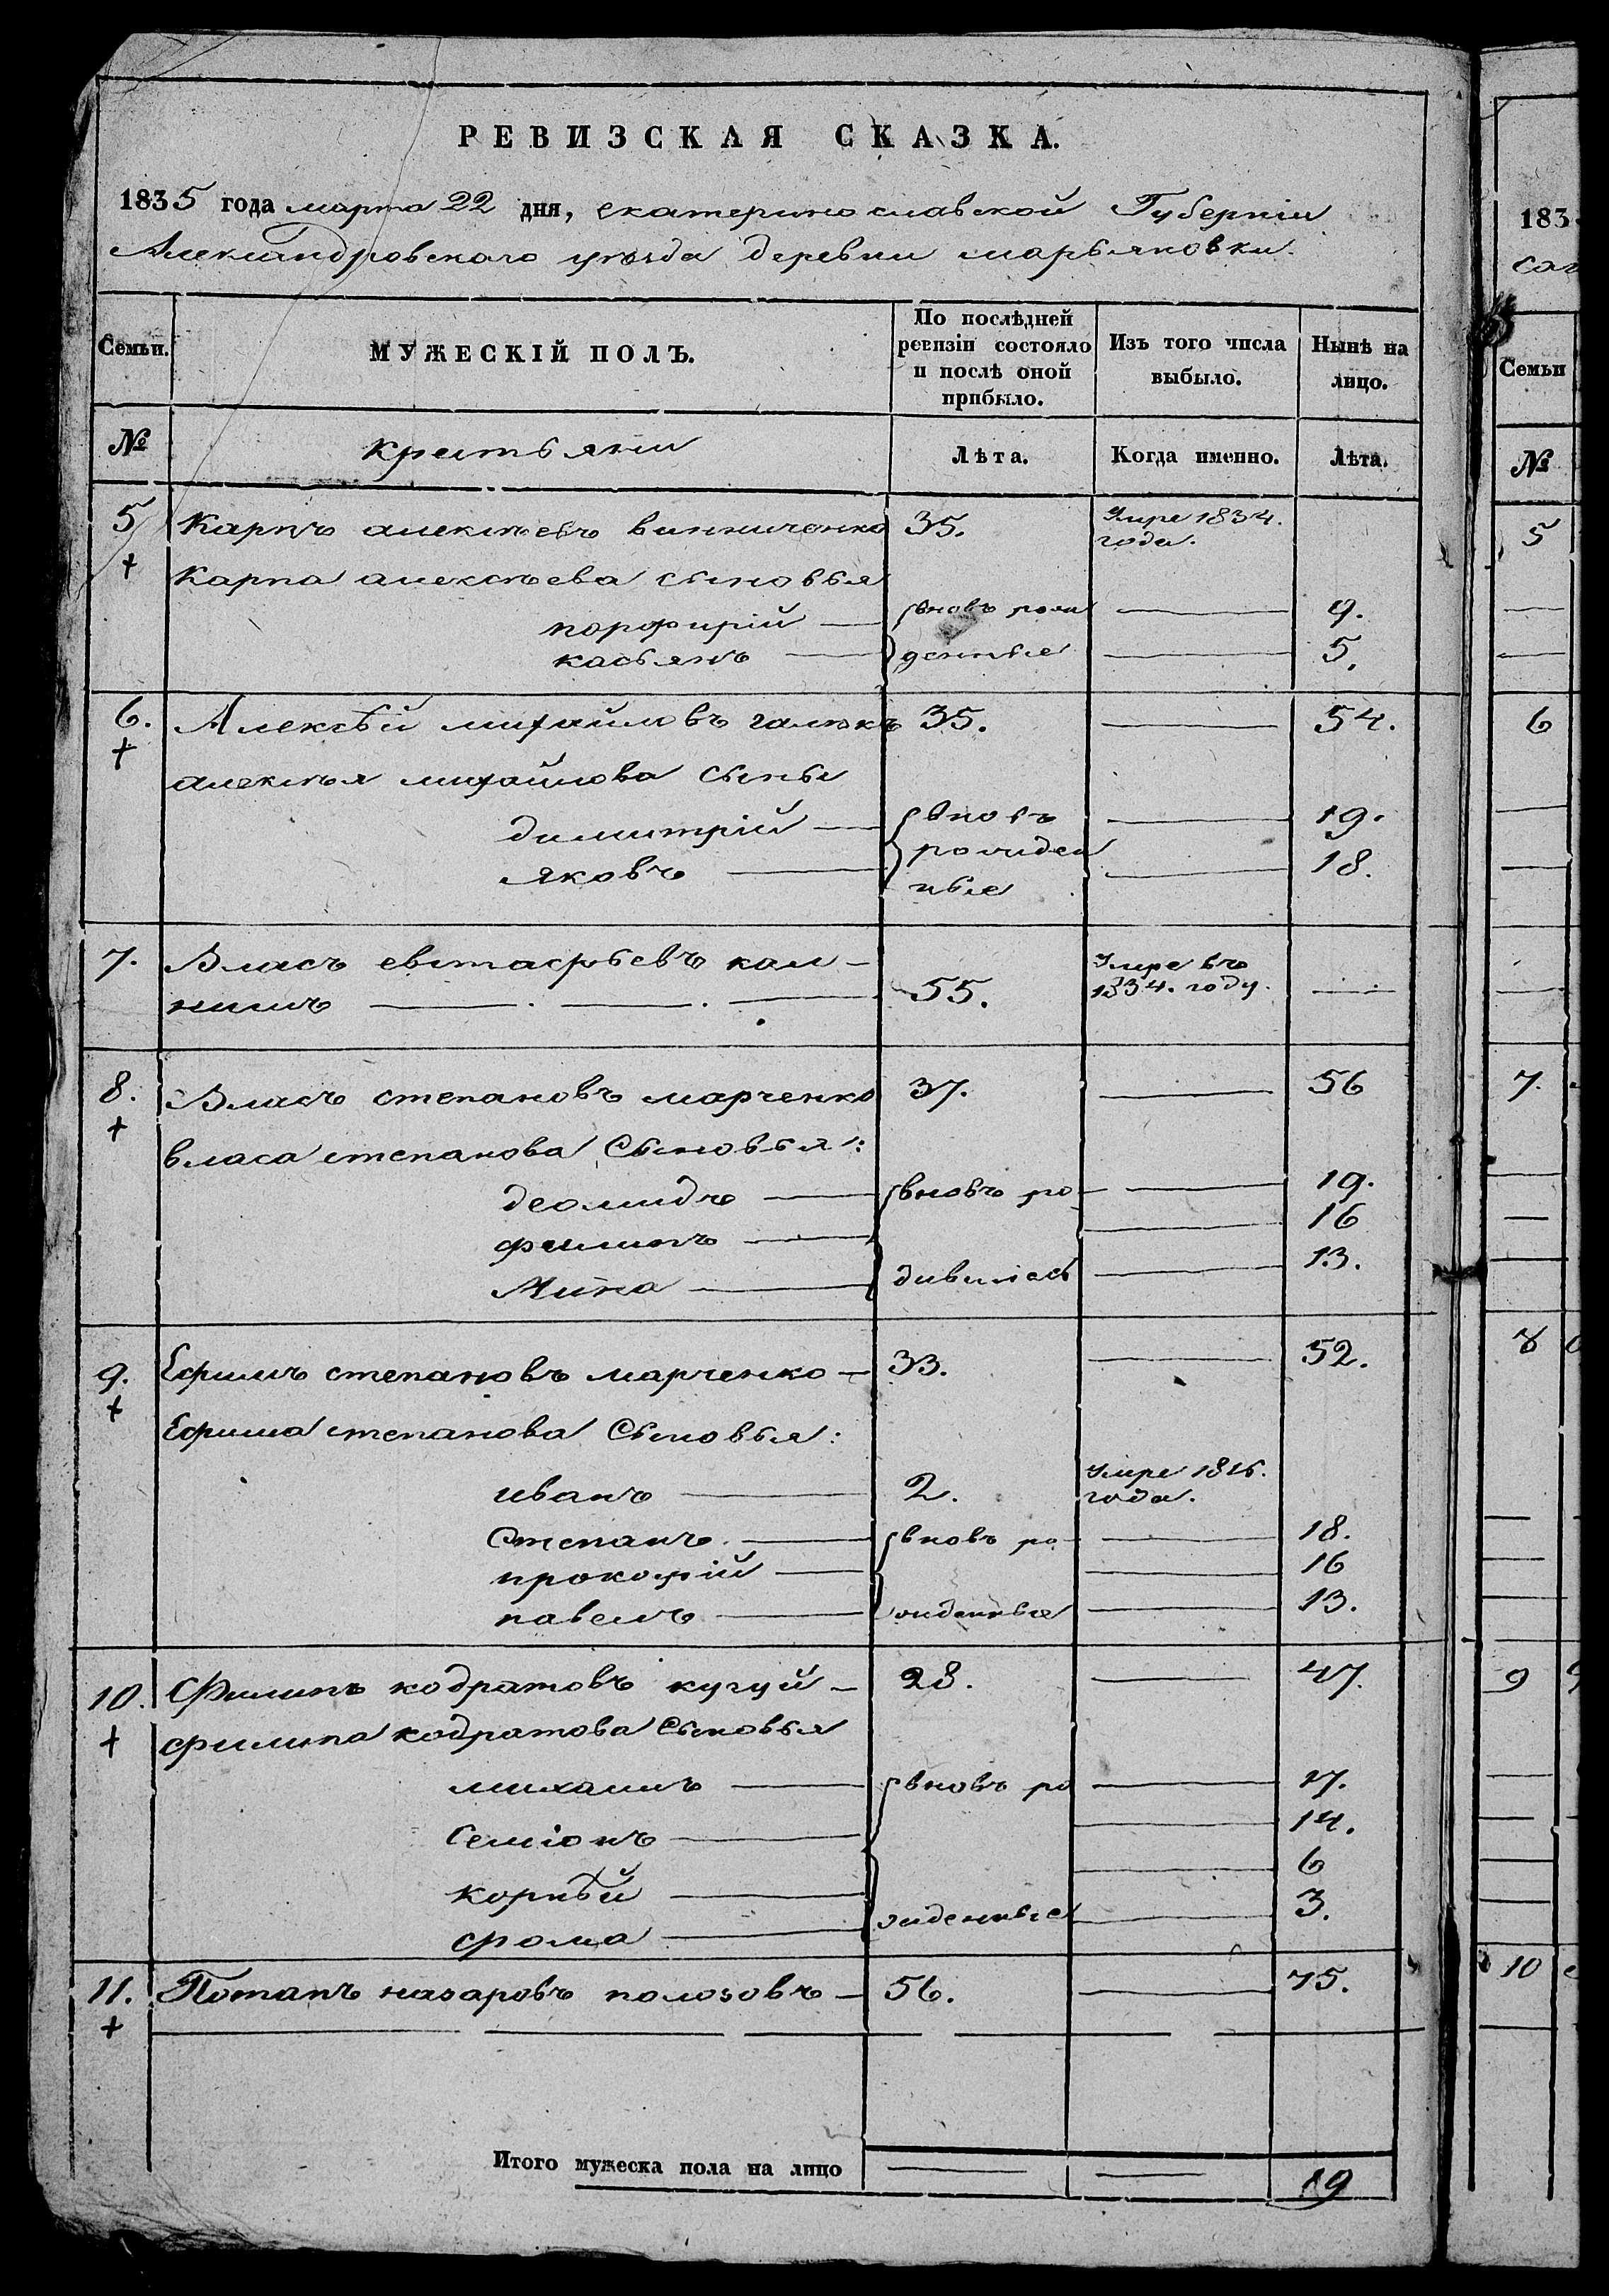 РЕВИЗСКАЯ СКАЗКА.
1835 года марта 22 дня, екатеринославской Губерніи
Александровскаго уѣзда деревни марьяновки.
Семьи. МУЖЕСКІЙ ПОЛЪ. По послѣдней ревизіи состояло и послѣ оной прибыло. Изъ того числа выбыло. Нынѣ на лицо.
№ крестьяни Лѣта. Когда именно. Лѣта.
5 Карпъ алексѣевъ винниченко 35. Умре 1834. года.
+ Карпа алексѣева сыновья
порфирій — вновь рож — 9.
касьянъ — денные — 5.
6. Алексѣй михайловъ 35. — 54.
+ алексѣя михайлова сыны
димитрій — вновь — 19.
яковъ — рожден — 18.
ные
7. Власъ евстафьевъ кал-
55. Умре въ 1834. году. —
8. Власъ степановъ марченко 37. — 56
+ власа степанова Сыновья:
деомидъ — вновь ро- — 19.
филипъ — — 16
Мина — дившіесь — 13.
9. Ефимъ степановъ марченко — 33. — 52.
+ Ефима степанова Сыновья:
иванъ — 2. Умре 1816. года.
Степанъ. — вновь ро- — 18.
прокофій — — 16
павелъ — жденные — 13.
10. Филипъ кодратовъ кугуй — 28. — 47.
+ филипа кодратова Сыновья
михаилъ — вновь ро — 17.
Семіонъ — — 14.
корнѣй — — 6
фома — жденные — 3.
11. Потапъ назаровъ полозовъ — 56. — 75.
+
Итого мужеска пола на лицо — — 19
183
Семьи
№
5
6
7.
8
9
10